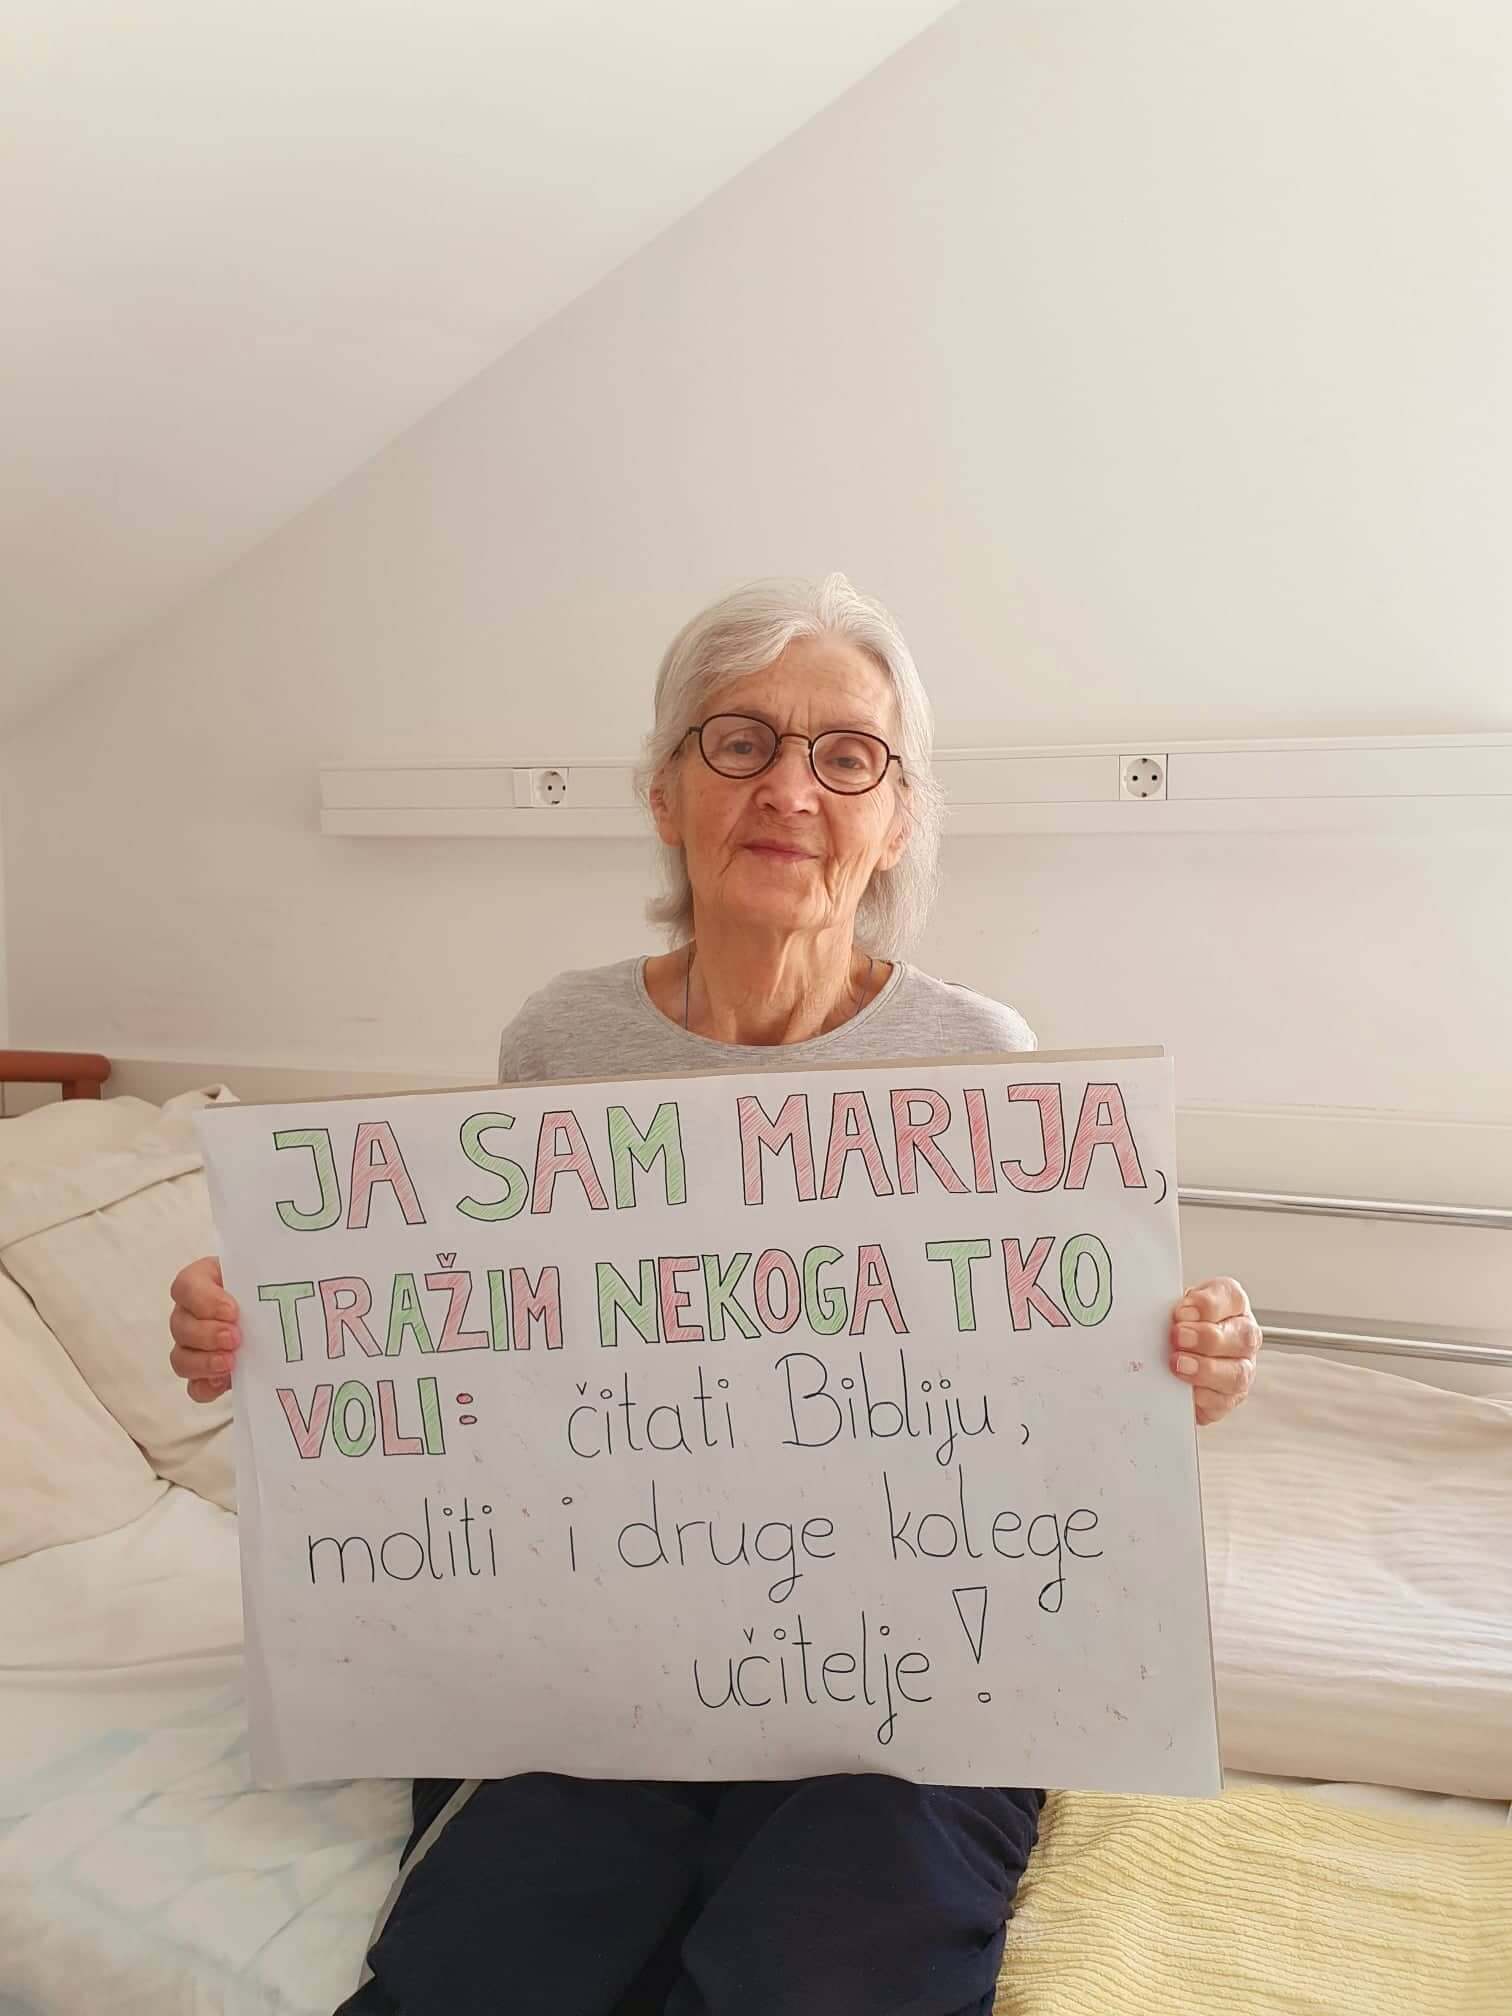 JA SAM MARIJA,
TRAŽIM NEKOGA TKO
VOLI: čitati Bibliju,
moliti i druge kolege
učitelje!